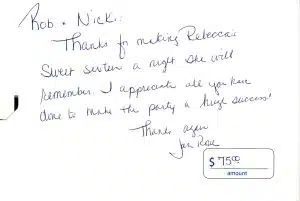 Rob & Nick:
Thanks for making Rebecca's
Sweet sixteen a night she will
remember. I appreciate all you have
done to make the party a huge success!
Thanks again
Jan
$ 75.00
amount